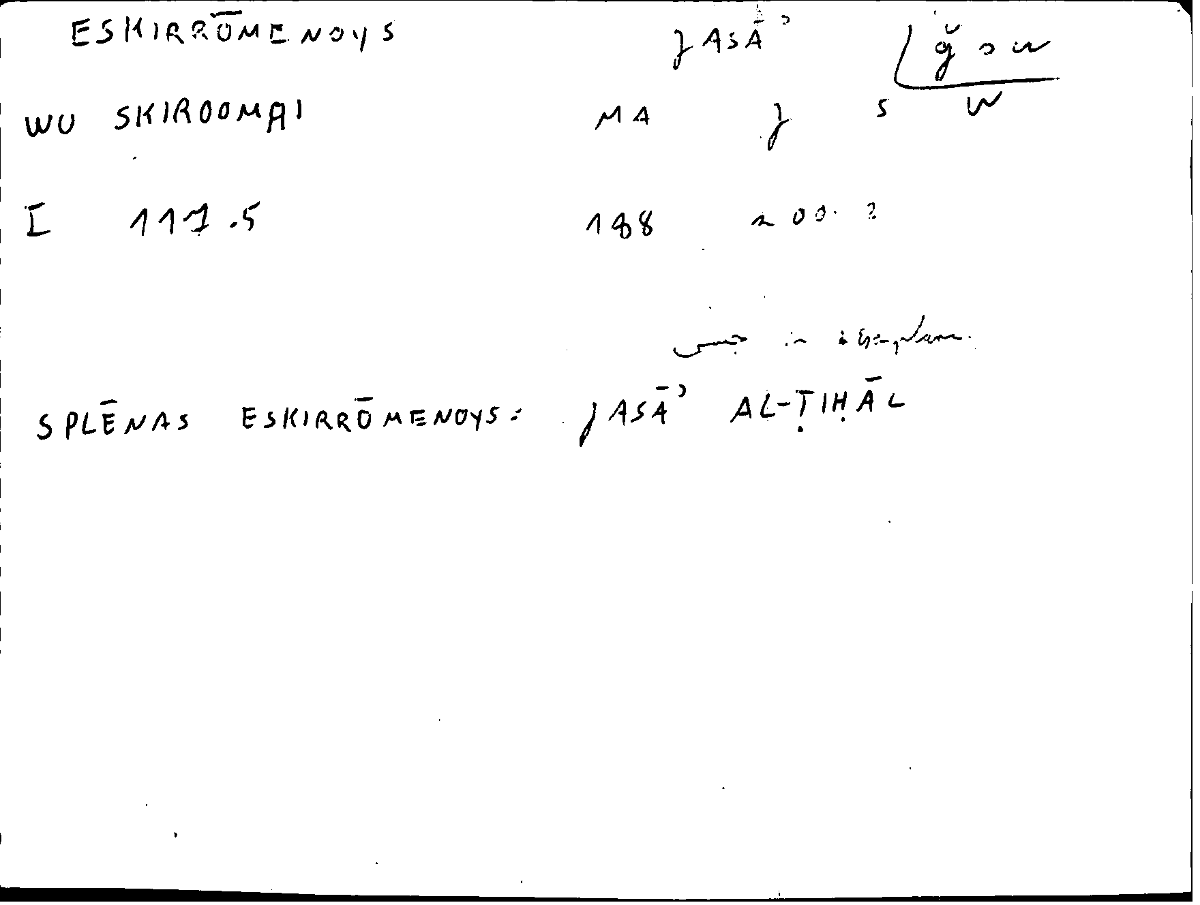 ESKIRRŌMENOYS JASĀʾ ǧsw
WU SKIROOMAI MA J S W
I 117.5 188 200.2
SPLĒNAS ESKIRRŌMENOYS: JASĀʾ AL-ṬIḤĀL